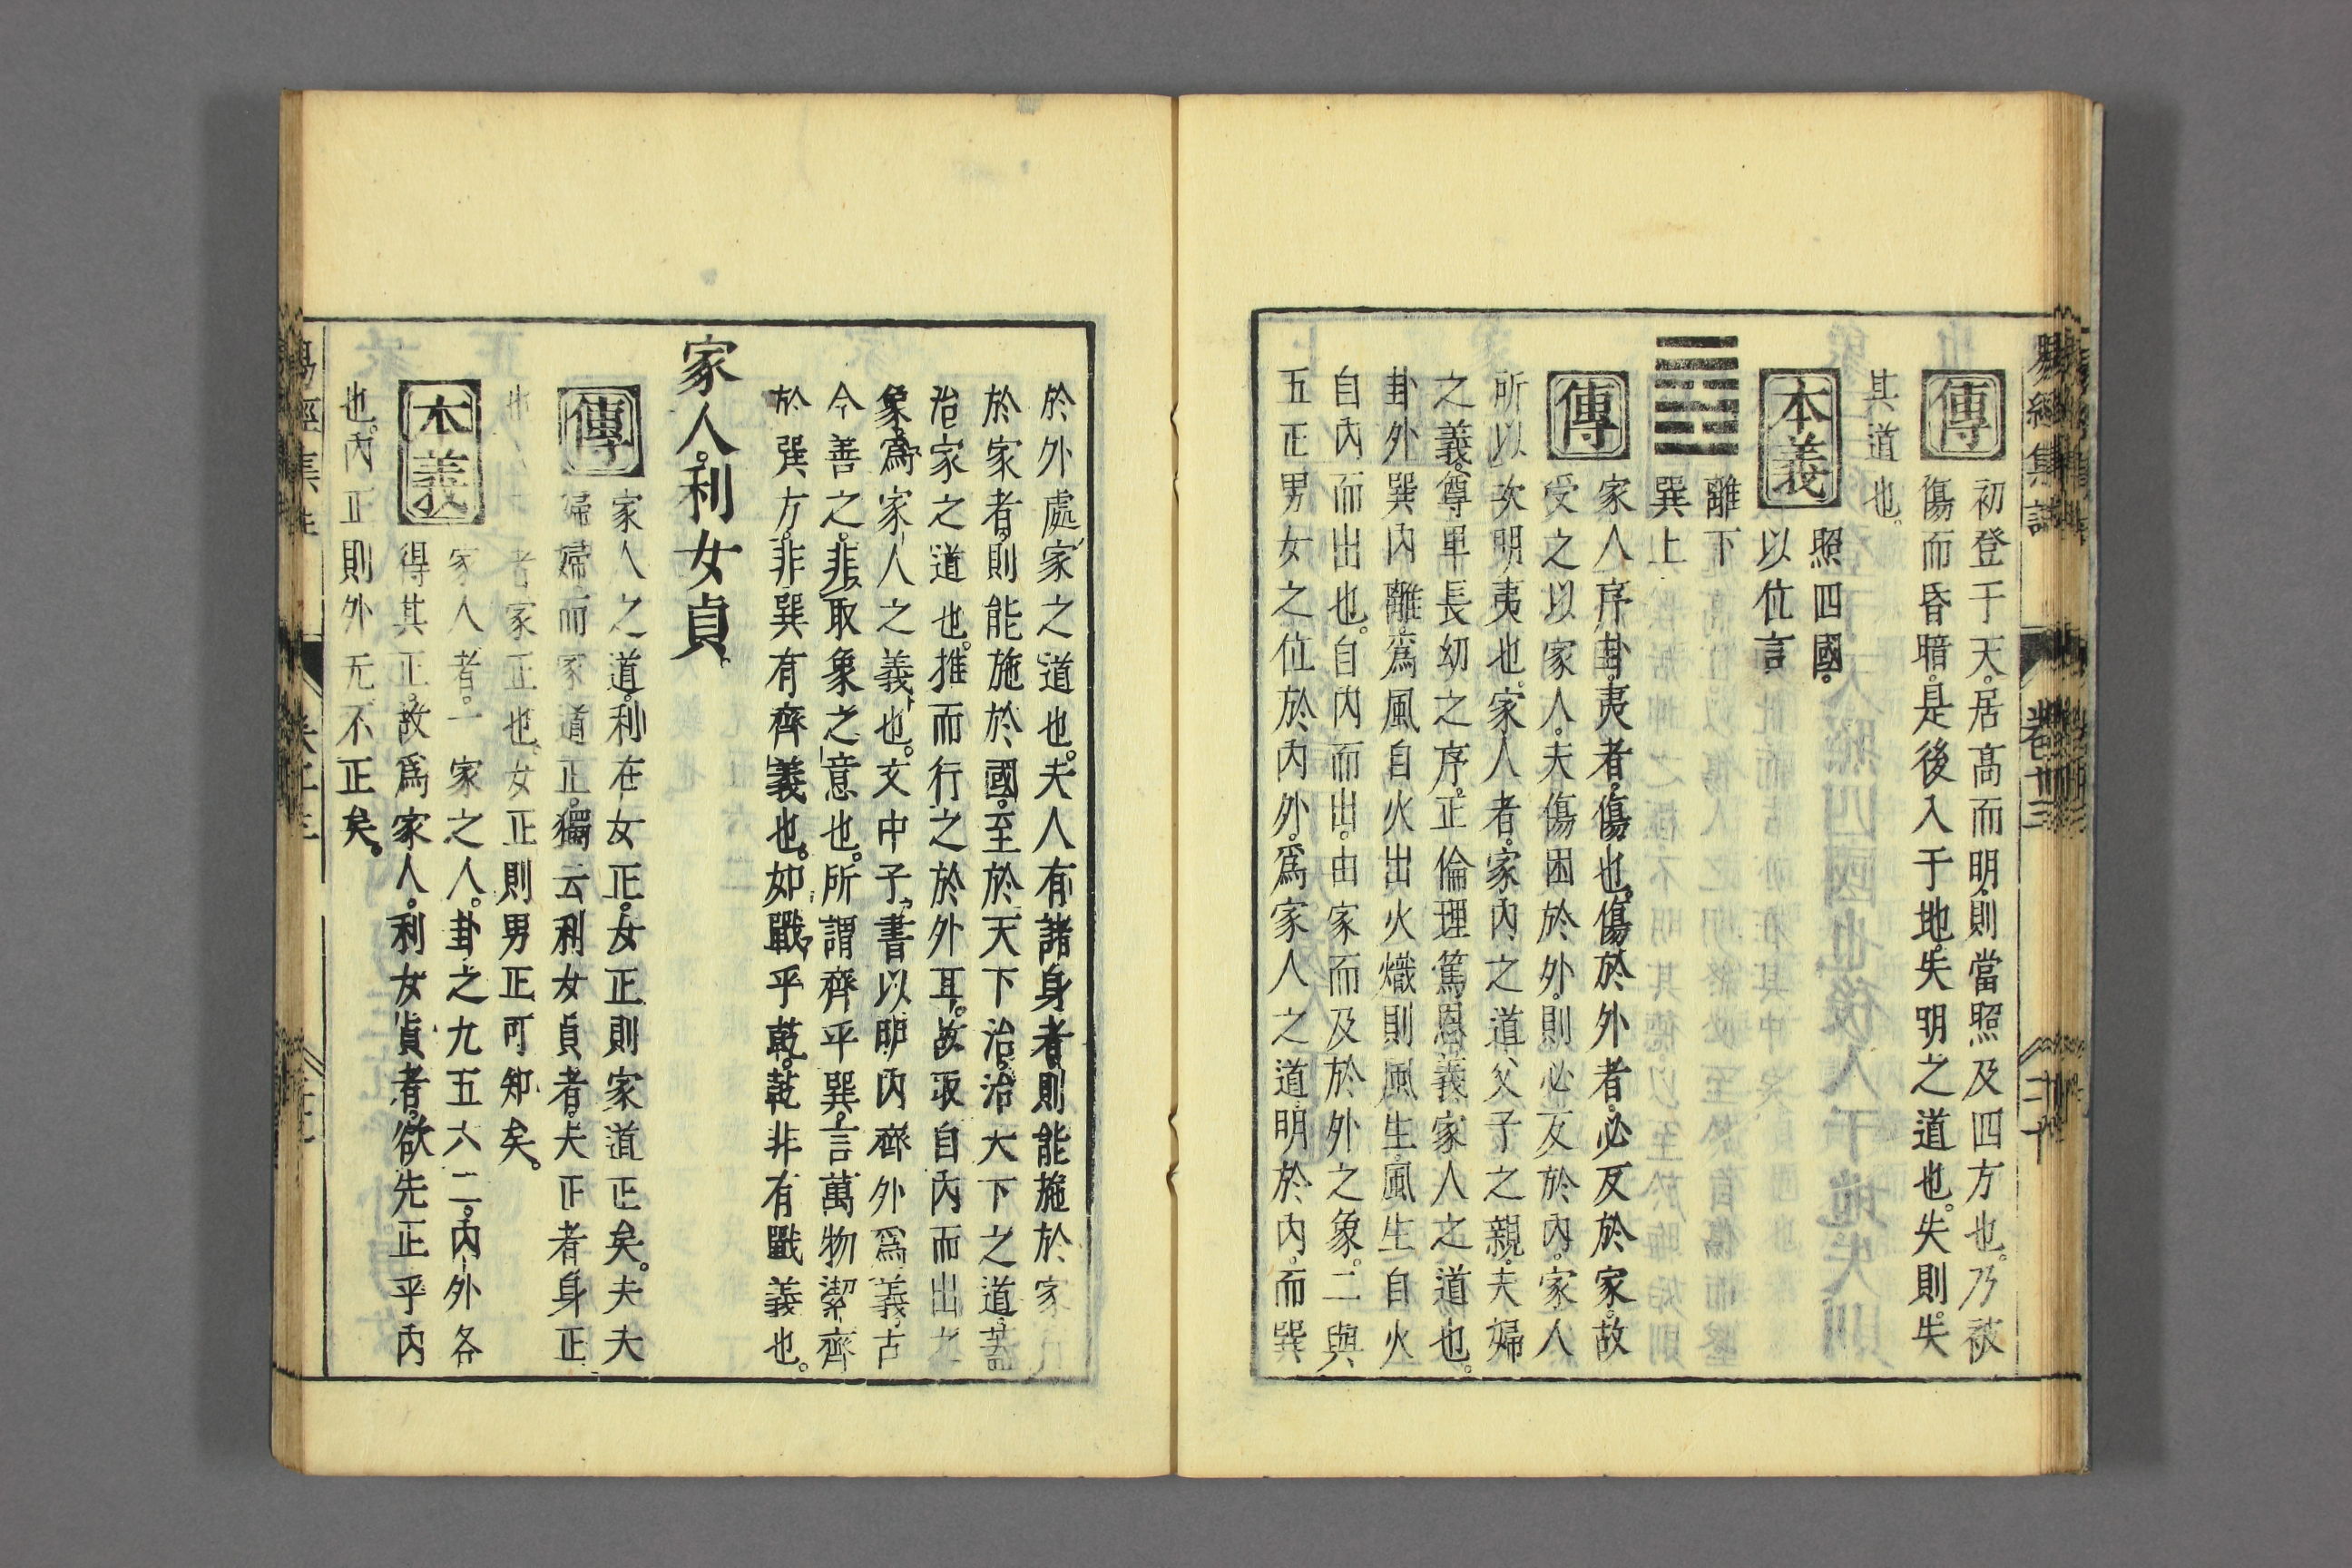 易經集註
卷十三
二十
傳
初登于天。居高而明。則當照及四方也。乃被
傷而昏暗。是後入于地。失明之道也。失則。失
其道也。
本義
照四國。
以位言
離下
巽上
傳
家人序卦。夷者。傷也。傷於外者。必反於家。故
受之以家人。夫傷困於外。則必反於內。家人
所以次明夷也。家人者。家內之道。父子之親。夫婦
之義。尊卑長幼之序。正倫理篤恩義家人之道也。
卦外巽內離。爲風自火出火熾則風生。風生自火
自內而出也。自內而出。由家而及於外之象。二與
五正男女之位於內外。爲家人之道明於內。而巽
於外處家之道也。夫人有諸身者則能施於家
於家者。則能施於國。至於天下治。治天下之道。蓋
治家之道也。推而行之於外耳。故取自內而出之
象。爲家人之義也。文中子書以明內齊外爲義。古
今善之。非取象之意也。所謂齊乎巽。言萬物潔齊
於巽方。非巽有齊義也。如戰乎乾。乾非有戰義也。
家人。利女貞。
傳
家人之道。利在女正。女正則家道正矣。夫夫
婦婦而家道正。獨云利女貞者。夫正者身正
也 者家正也。女正則男正可知矣。
本義
家人者。一家之人。卦之九五六二。內外各
得其正。故爲家人。利女貞者。欲先正乎內
也。內正則外无不正矣。
易經集註